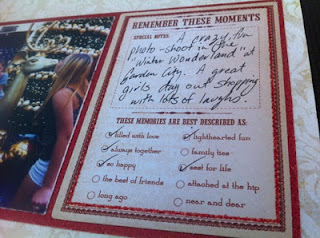 REMEMBER THESE MOMENTS
SPECIAL NOTES: A crazy, fun
photo-shoot in the
"Winter Wonderland" at
Garden City. A great
girls day out shopping
with lots of laughs.
THESE MEMORIES ARE BEST DESCRIBED AS:
filled with love
lighthearted fun
always together
family ties
so happy
zest for life
the best of friends
attached at the hip
long ago
near and dear